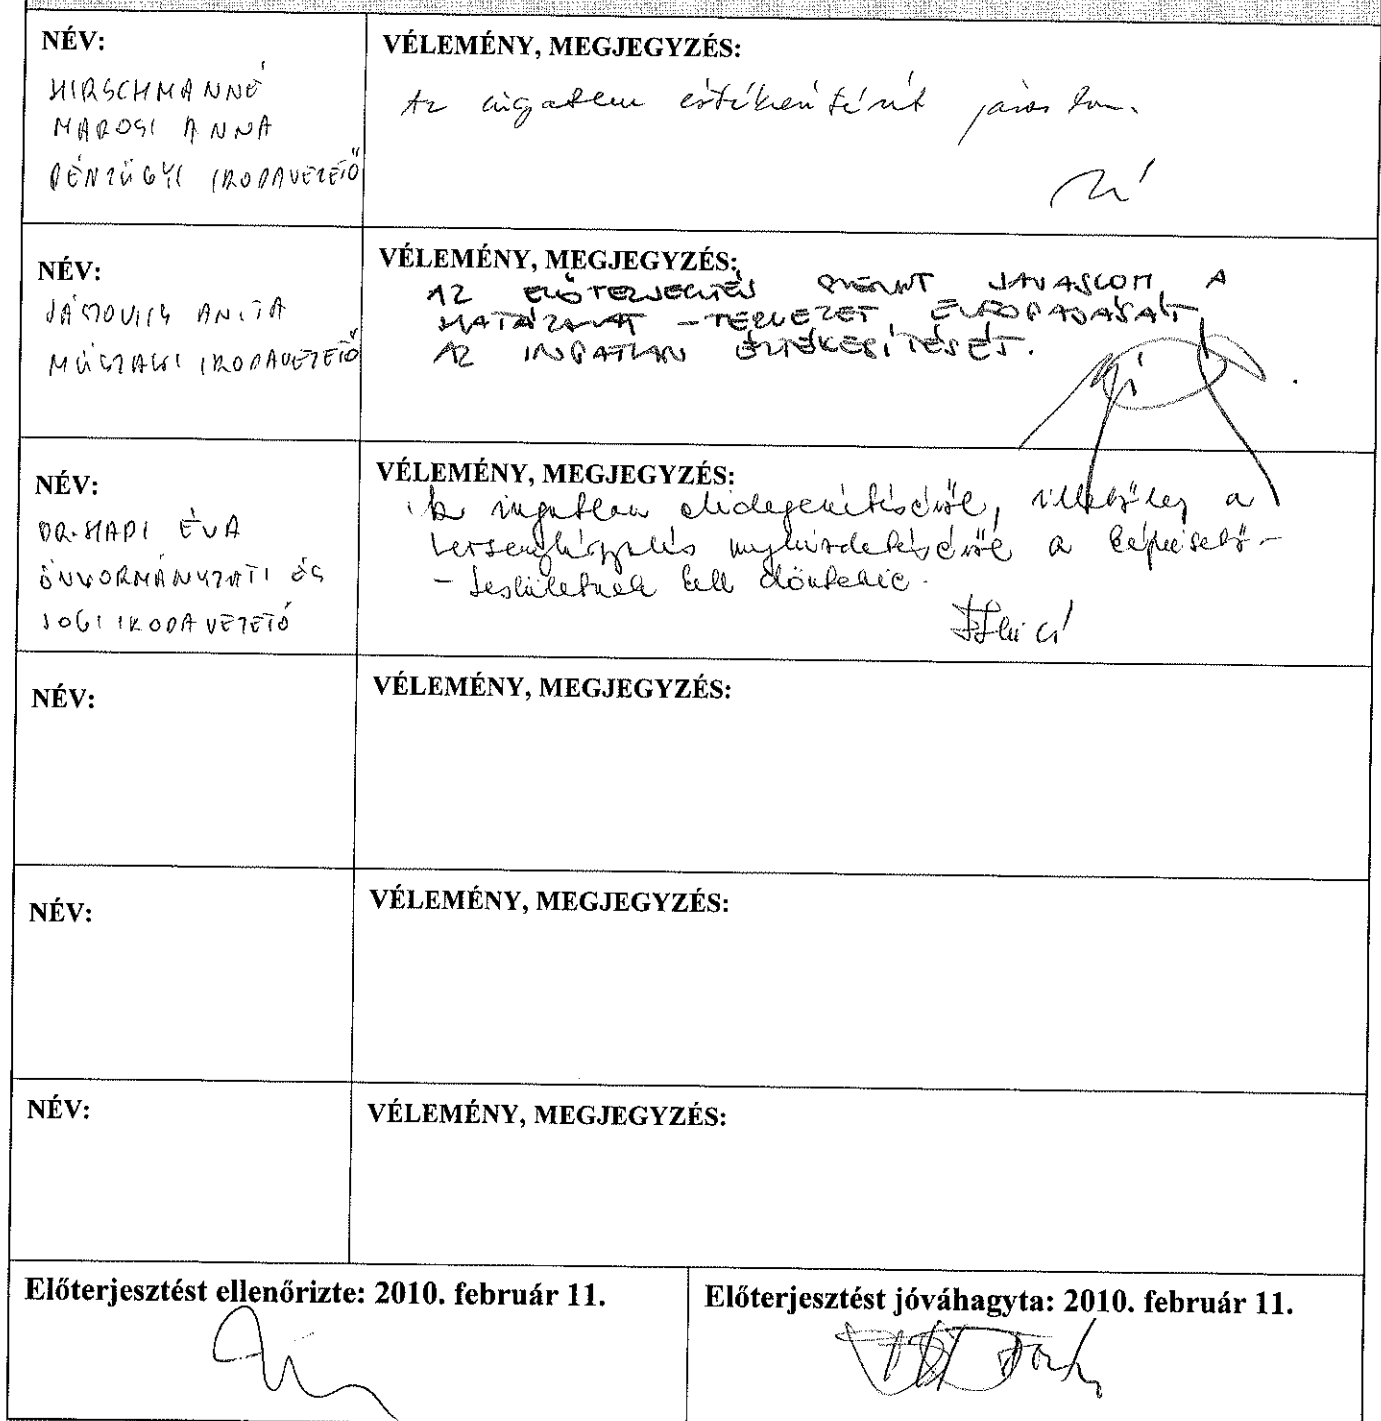 NÉV:
HIRSCHMANNÉ
MAROSI ANNA
PÉNZÜGYI IRODAVEZETŐ
VÉLEMÉNY, MEGJEGYZÉS:
Az ingatlan értékesítését javaslom.
NÉV:
ANITA
MŰSZAKI IRODAVEZETŐ
VÉLEMÉNY, MEGJEGYZÉS:
AZ ELŐTERJESZTÉS SZERINT JAVASLOM A
HATÁROZAT-TERVEZET ELFOGADÁSÁT,
AZ INGATLAN ÉRTÉKESÍTÉSÉT.
NÉV:
DR. HAPI ÉVA
ÖNKORMÁNYZATI ÉS
JOGI IRODAVEZETŐ
VÉLEMÉNY, MEGJEGYZÉS:
Az ingatlan elidegenítéséről, illetőleg a
versenytárgyalás meghirdetéséről a képviselő-
-testületnek kell döntenie.
NÉV:
VÉLEMÉNY, MEGJEGYZÉS:
NÉV:
VÉLEMÉNY, MEGJEGYZÉS:
NÉV:
VÉLEMÉNY, MEGJEGYZÉS:
Előterjesztést ellenőrizte: 2010. február 11.
Előterjesztést jóváhagyta: 2010. február 11.